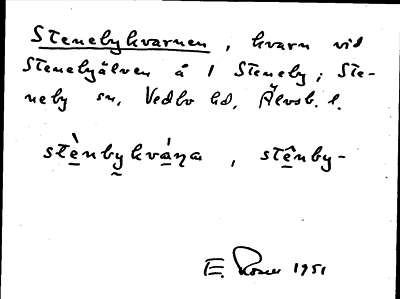 Stenebykvarnen, kvarn vid
Stenebyälven å 1 Steneby; Ste-
neby sn, Vedbo hd, Älvsb. l.
stè̲nby̰kvá̲ṇa, stê̲nby-
E. 1951